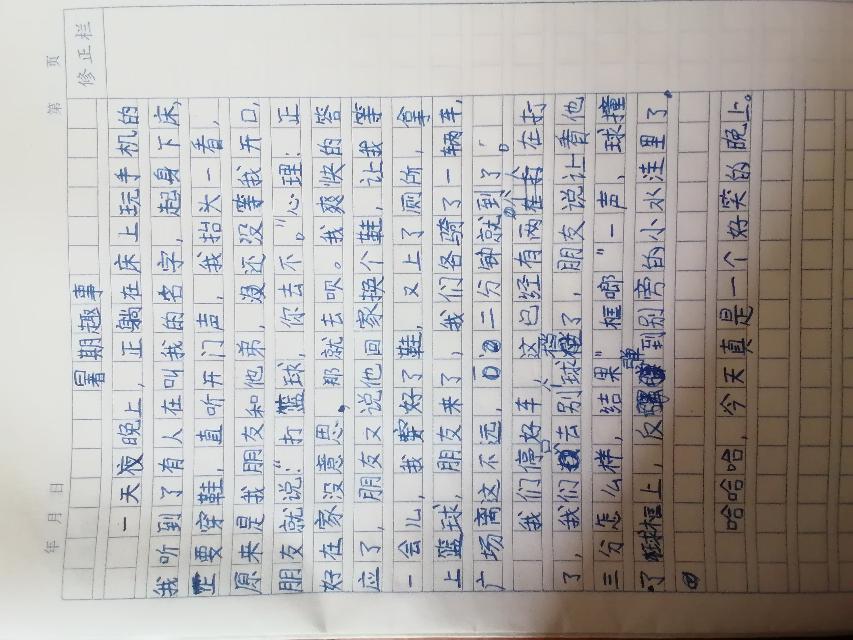 第 页
年 月 日
修正栏
暑期趣事
一天夜晚上,正躺在床上玩手机的
我听到了有人在叫我的名字,起身下床,
正要穿鞋,直听开门声,我抬头一看,
原来是我朋友和他弟,没还没等我开口,
朋友就说:“打蓝球,你去不。”心理:正
好在家没意思,那就去呗。我爽快的答
应了,朋友又说他回家换个鞋,让我等
一会儿,我穿好了鞋,又上了厕所,拿
上篮球,朋友来了,我们各骑了一辆车,
广场离这不远,二分钟就到了。
我们停好车,这已经有两个人在打
了,我们去别球框了,朋友说让看他
三分怎么样,结果“框啷”一声,球撞
了球框上,反弹到别旁的小水洼里了。
哈哈哈,今天真是一个好笑的晚上。